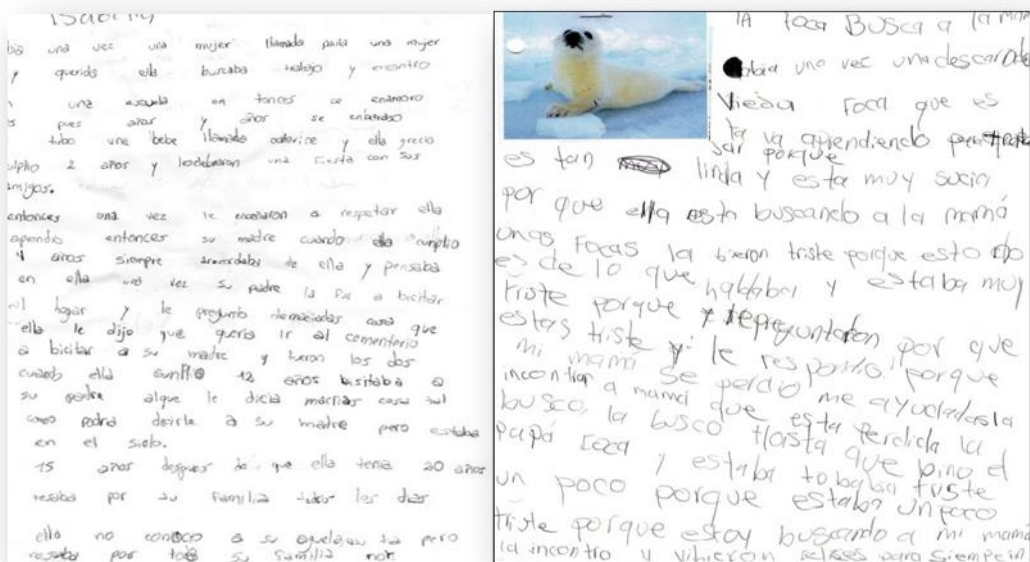 bia una vez una mujer llamada paula una mujer
y querida ella buscaba trabajo y encontro
una escuela en tonces se enamoro
pues años y años se enbaraso
tubo una bebe llamada y ella grecio
2 años y una fiesta con sus
amigos.
entonces una vez le enceñaron a respetar ella
aprendio entonces su madre cuando ella cunplio
4 años sienpre de ella y pensaba
en ella una vez su padre la fue a bicitar
hogar y le pregunto demaciadas casa que
ella le dijo que queria ir al comentario
a bicitar a su madre y fueron los dos
cuando ella cunplio 12 años bisitaba a
su padre alque le dicia muchas casa tal
como podra desirle a su madre pero estaba
en el sielo.
15 años despues de que ella tenia 20 años
resaba por su familia todos los dias
ella no conocio a su aguela,su tia pero
resaba por toda su familia
lA foca BUSCa a la mam
abia una vez una
foca que es
ta va aprendiendo
porque
es tan linda y esta muy sucia
por que ella esta buscando a la mamá
unas Focas la bieron triste porque esto no
es de lo que hablaba y estaba muy
triste porque y repreguntaron por que
estas triste y le respondio porque
mi mamí se perdio me ayudadasla
incontrar a mamá que esta perdida la
busco, la busco Hasta que bino el
papá y estaba triste
un poco porque estaba un poco
triste porque estoy buscando a mi mama
la incontro y vibieron para siempe